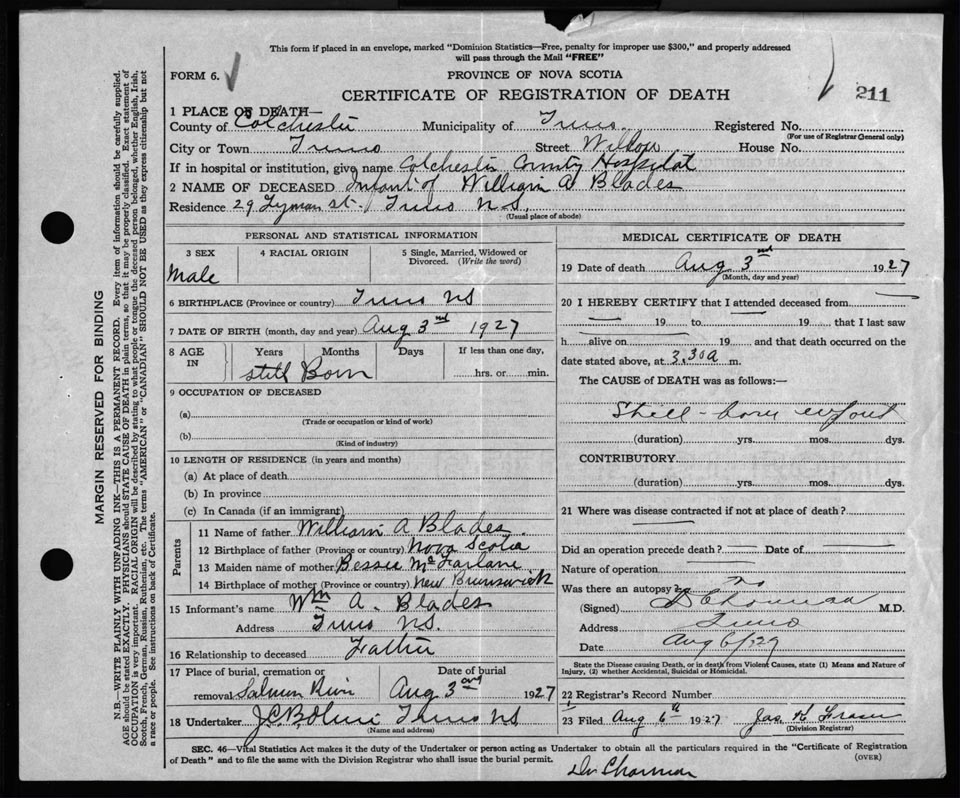 This form if placed in an envelope, marked "Dominion Statistics—Free, penalty for improper use $300," and properly addressed
will pass through the Mail "FREE"
FORM 6.
PROVINCE OF NOVA SCOTIA
CERTIFICATE OF REGISTRATION OF DEATH
211
1 PLACE OF DEATH—
County of Colchester Municipality of Truro. Registered No.
(For use of Registrar General only)
City or Town Truro Street Willow House No.
If in hospital or institution, give name Colchester County Hospital
2 NAME OF DECEASED Infant of William A Blades
Residence 29 Lyman St. Truro N.S.
(Usual place of abode)
PERSONAL AND STATISTICAL INFORMATION
3 SEX 4 RACIAL ORIGIN 5 Single, Married, Widowed or
Divorced. (Write the word)
Male
6 BIRTHPLACE (Province or country) Truro NS
7 DATE OF BIRTH (month, day and year) Aug 3rd 1927
8 AGE IN Years Months Days If less than one day,
Still Born hrs. or min.
9 OCCUPATION OF DECEASED
(a)
(Trade or occupation or kind of work)
(b)
(Kind of industry)
10 LENGTH OF RESIDENCE (in years and months)
(a) At place of death
(b) In province
(c) In Canada (if an immigrant)
Parents
11 Name of father William A Blades.
12 Birthplace of father (Province or country) Nova Scotia
13 Maiden name of mother Bessie McFarlane
14 Birthplace of mother (Province or country) New Brunswick
15 Informant's name Wm A. Blades
Address Truro NS.
16 Relationship to deceased Father
17 Place of burial, cremation or Date of burial
removal Salmon River Aug 3rd 1927
18 Undertaker Truro NS
(Name and address)
MEDICAL CERTIFICATE OF DEATH
19 Date of death Aug 3rd 1927
(Month, day and year)
20 I HEREBY CERTIFY that I attended deceased from
19 to 19 that I last saw
h alive on 19 and that death occurred on the
date stated above, at 3.30a m.
The CAUSE of DEATH was as follows:—
Still-born infant
(duration) yrs. mos. dys.
CONTRIBUTORY
(duration) yrs. mos. dys.
21 Where was disease contracted if not at place of death?
Did an operation precede death? Date of
Nature of operation
Was there an autopsy? No
(Signed) M.D.
Address Truro
Date Aug 6/27
State the Disease causing Death, or in death from Violent Causes, state (1) Means and Nature of
Injury, (2) whether Accidental, Suicidal or Homicidal.
22 Registrar's Record Number
23 Filed Aug 6th 1927 Jas H Fraser
(Division Registrar)
SEC. 46—Vital Statistics Act makes it the duty of the Undertaker or person acting as Undertaker to obtain all the particulars required in the "Certificate of Registration
of Death" and to file the same with the Division Registrar who shall issue the burial permit.
(OVER)
MARGIN RESERVED FOR BINDING
N.B.—WRITE PLAINLY WITH UNFADING INK—THIS IS A PERMANENT RECORD. Every item of information should be carefully supplied.
AGE should be stated EXACTLY. PHYSICIANS should STATE CAUSE OF DEATH in plain terms, so that it may be properly classified. Exact statement of
OCCUPATION is very important. RACIAL ORIGIN will be described by stating to what people or tongue the deceased person belonged, whether English, Irish,
Scotch, French, German, Russian, Ruthenian, etc. The terms "AMERICAN" or "CANADIAN" SHOULD NOT BE USED as they express citizenship but not
a race or people. See instructions on back of Certificate.